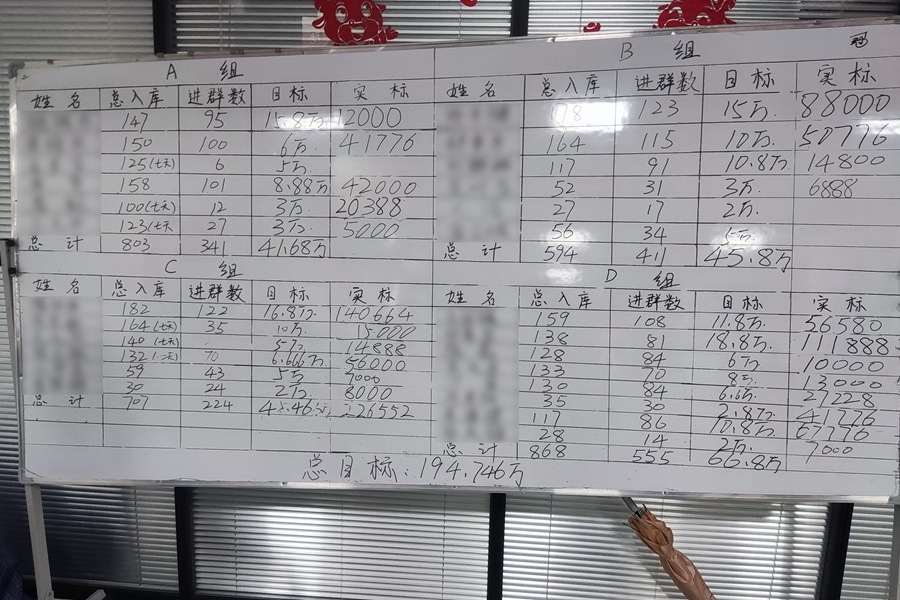 A 组
姓 名 总入库 进群数 目标 实 标
147 95 15.8万 12000
150 100 6万 41776
125(七天) 6 5万
158 101 8.88万 42000
100(七天) 12 3万 20388
123(七天) 27 3万 5000
总 计 803 341 41.68万
B 组 冠
姓 名 总入库 进群数 目标 实 标
178 123 15万 88000
164 115 10万 50776
117 91 10.8万 14800
52 31 3万 6888
27 17 2万
56 34 5万
总 计 594 411 45.8万
C 组
姓 名 总入库 进群数 目标 实标
182 122 16.8万 140664
164(七天) 35 10万 15000
140(七天) 5万 14888
132 70 6.666万 56000
59 43 5万 7000
30 24 2万 8000
总 计 707 224 226552
D 组
姓 名 总入库 进群数 目标 实标
159 108 11.8万 56580
138 81 18.8万 111888
128 84 6万 10000
133 70 8万 13000
130 84 6.6万 27228
35 30 2.8万 41776
117 86 10.8万 67776
28 14 2万 7000
总 计 868 555 66.8万
总目标:194.746万